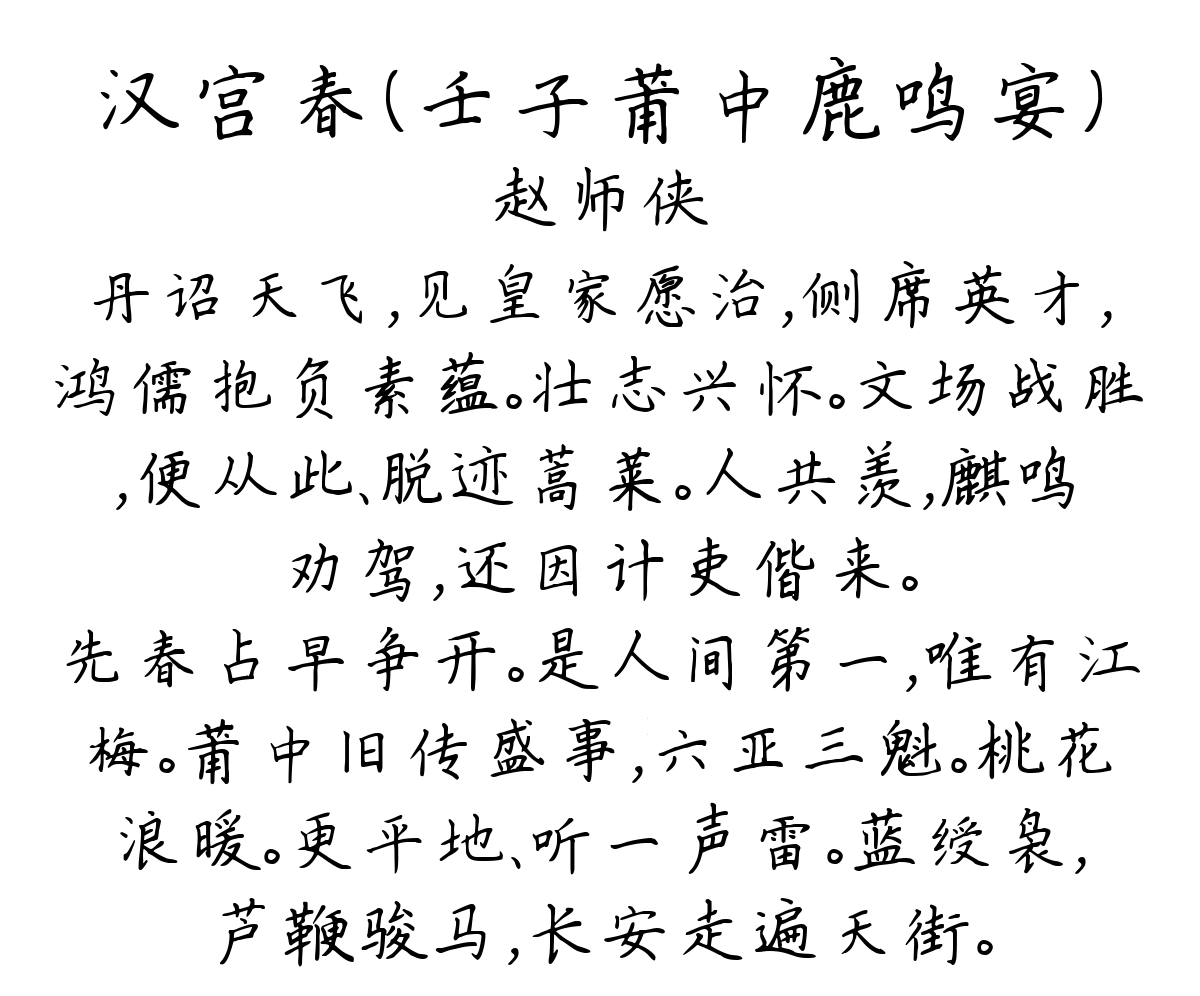 汉宫春(壬子莆中鹿鸣宴)
赵师侠
丹诏天飞,见皇家愿治,侧席英才,
鸿儒抱负素蕴。壮志兴怀。文场战胜
,便从此、脱迹蒿莱。人共羡,麒鸣
劝驾,还因计吏偕来。
先春占早争开。是人间第一,唯有江
梅。莆中旧传盛事,六亚三魁。桃花
浪暖。更平地、听一声雷。蓝绶袅,
芦鞭骏马,长安走遍天街。